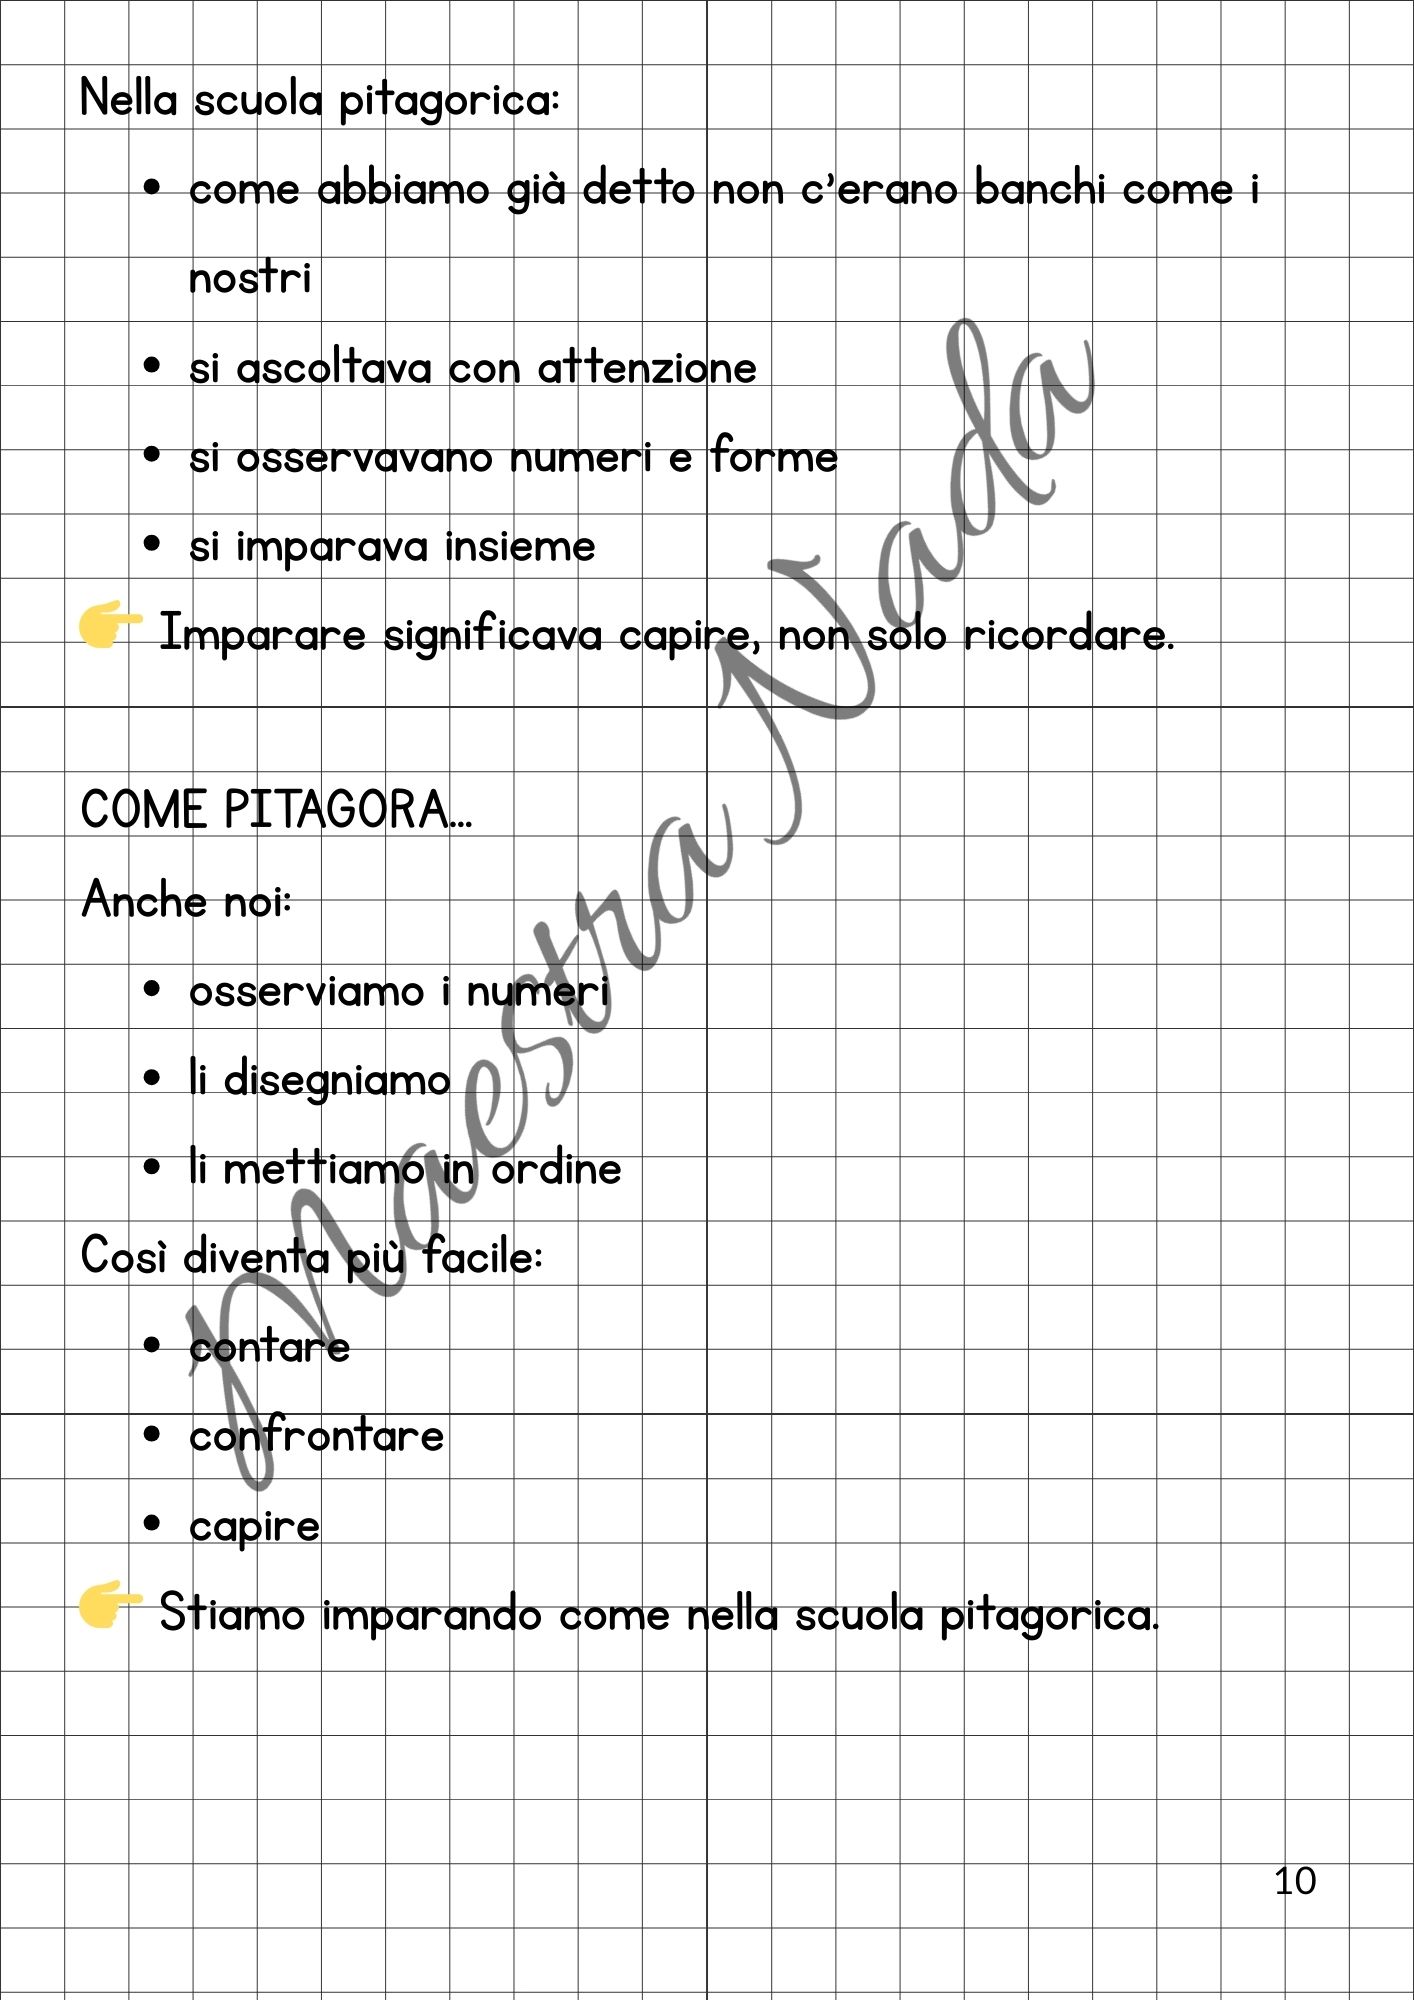 Nella scuola pitagorica:
• come abbiamo già detto non c'erano banchi come i
nostri
• si ascoltava con attenzione
• si osservavano numeri e forme
• si imparava insieme
👉 Imparare significava capire, non solo ricordare.
COME PITAGORA...
Anche noi:
• osserviamo i numeri
• li disegniamo
• li mettiamo in ordine
Così diventa più facile:
• contare
• confrontare
• capire
👉 Stiamo imparando come nella scuola pitagorica.
Maestra Nada
10